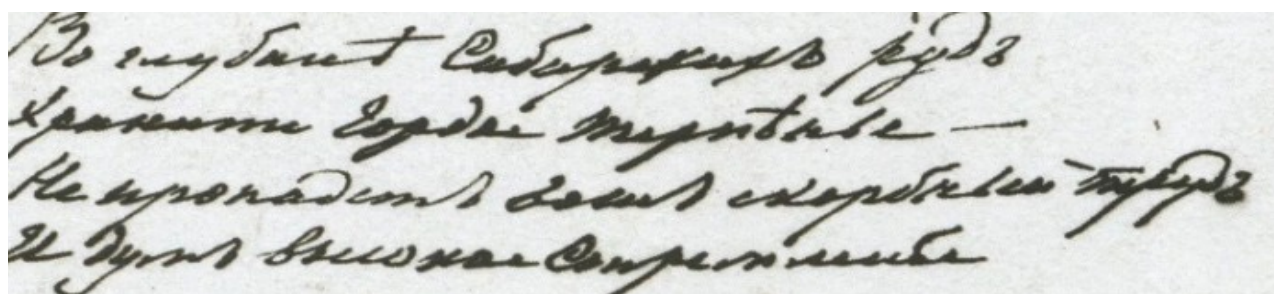 Во глубинѣ Сибирскихъ рудъ
Храните гордое терпѣнье —
Не пропадетъ вашъ скорбный трудъ
И думъ высокое стремленье